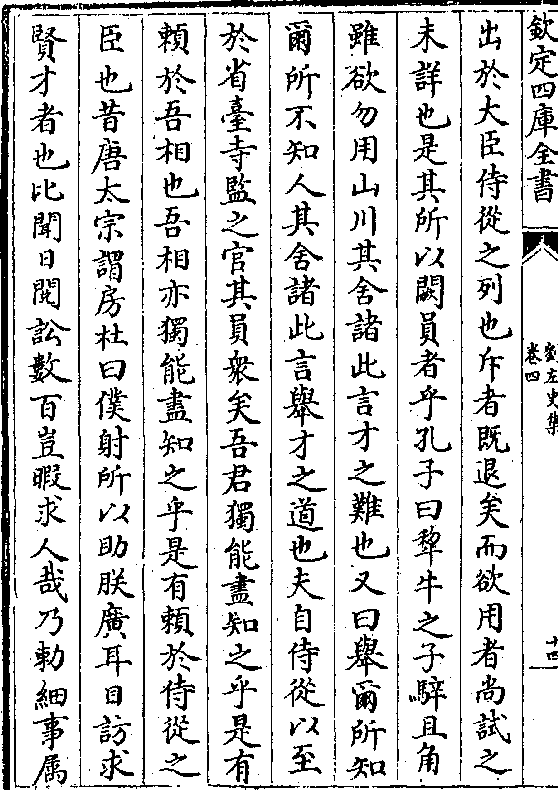 欽定四庫全書
劉左史集
卷四
十四
出於大臣侍從之列也斥者既退矣而欲用者尚試之
未詳也是其所以闕員者乎孔子曰犂牛之子騂且角
雖欲勿用山川其舍諸此言才之難也又曰舉爾所知
爾所不知人其舍諸此言舉才之道也夫自侍從以至
於省臺寺監之官其員衆矣吾君獨能盡知之乎是有
頼於吾相也吾相亦獨能盡知之乎是有頼於侍從之
臣也昔唐太宗謂房杜曰僕射所以助朕廣耳目訪求
賢才者也比聞日閱訟數百豈暇求人哉乃勅細事属